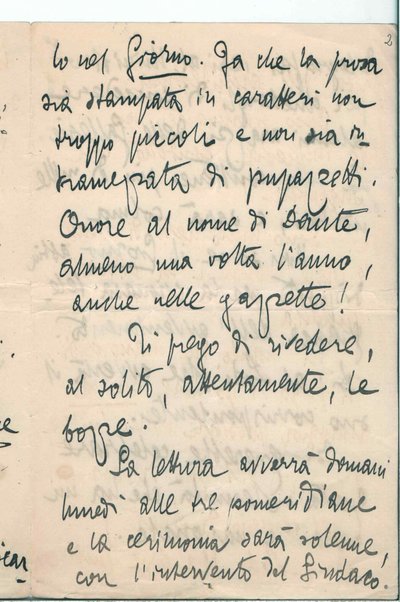 2
lo nel Giorno. Fa che la prosa
sia stampata in caratteri non
troppo piccoli e non sia in-
tramezzata di pupazzetti.
Onore al nome di Dante,
almeno una volta l'anno,
anche nelle gazzette!
Ti prego di rivedere,
al solito, attentamente, le
bozze.
La lettura avverrà domani
lunedì alle tre pomeridiane
e la cerimonia sarà solenne,
con l'intervento del Sindaco.